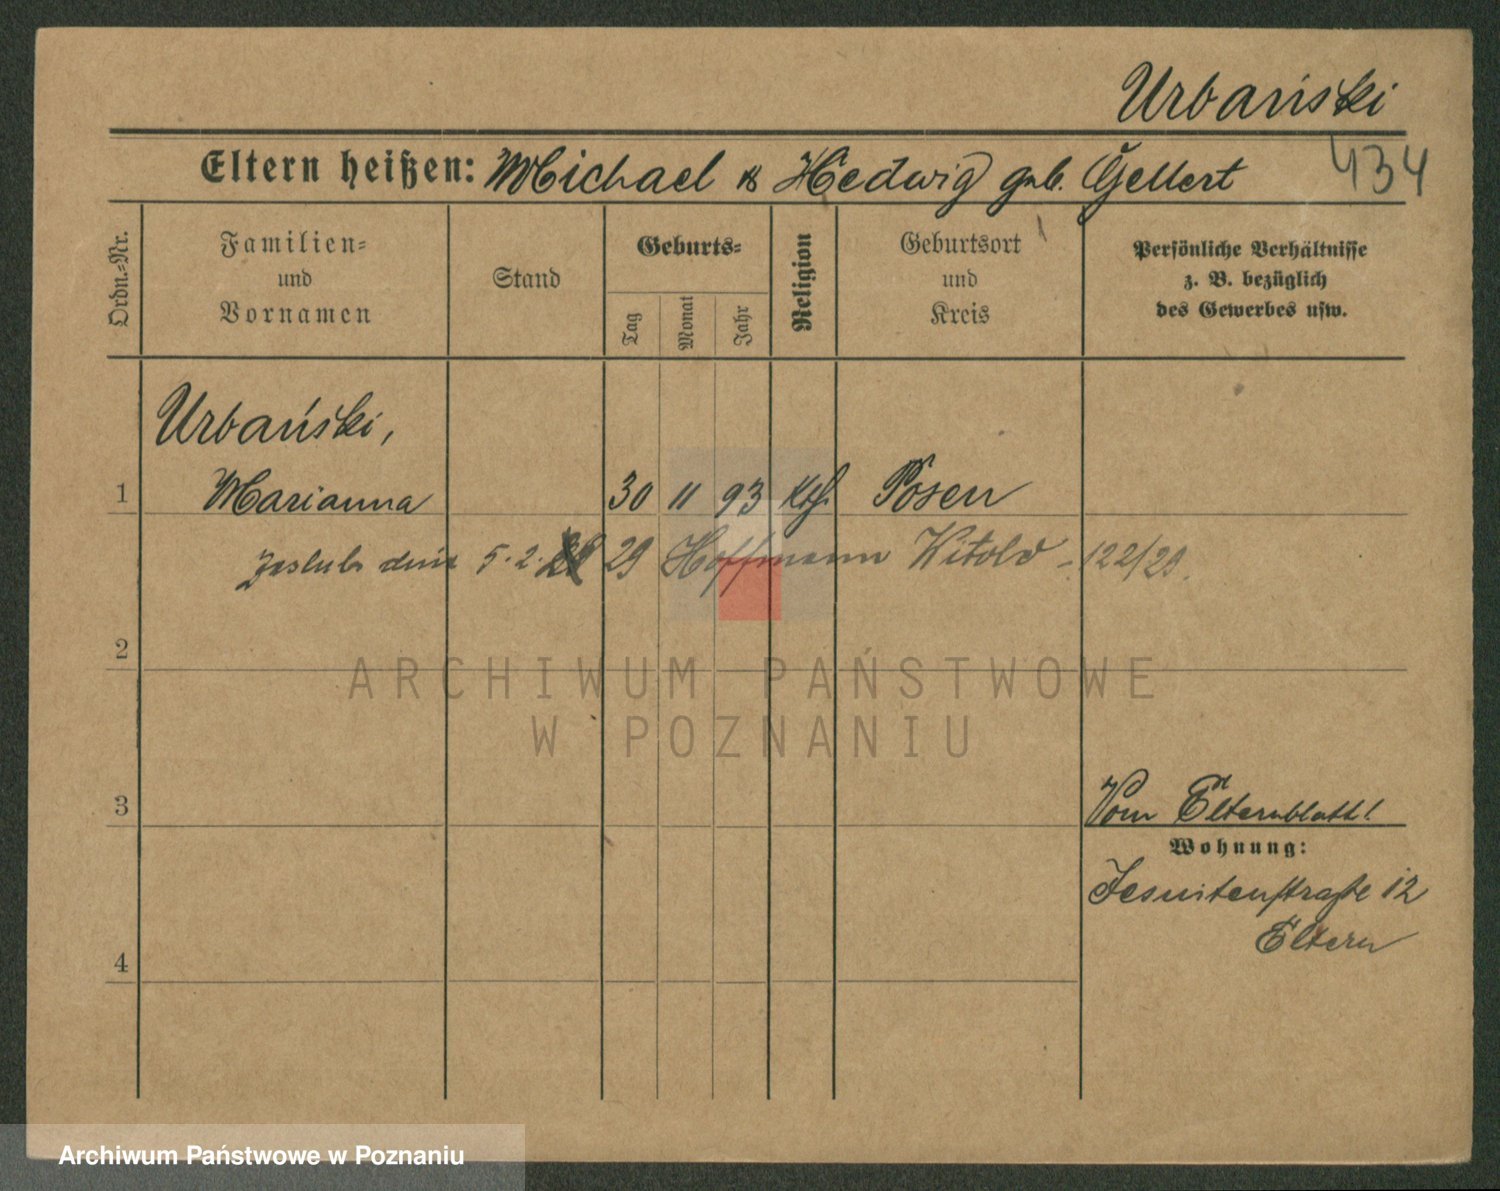 Urbański
Eltern heißen: Michael & Hedwig geb. Gellert 434
Ordn.-Nr.
Familien-
und
Vornamen
Stand
Geburts-
Tag
Monat
Jahr
Religion
Geburtsort
und
Kreis
Persönliche Verhältnisse
z. B. bezüglich
des Gewerbes usw.
Urbański,
1 Marianna 30 11 93 kth. Posen
Zaślub. dnia 5.2. 29 Hoffmann Witold - 122/29.
2
ARCHIWUM PAŃSTWOWE
W POZNANIU
3
Vom Elternblatt!
Wohnung:
Jesuitenstraße 12
Eltern
4
Archiwum Państwowe w Poznaniu